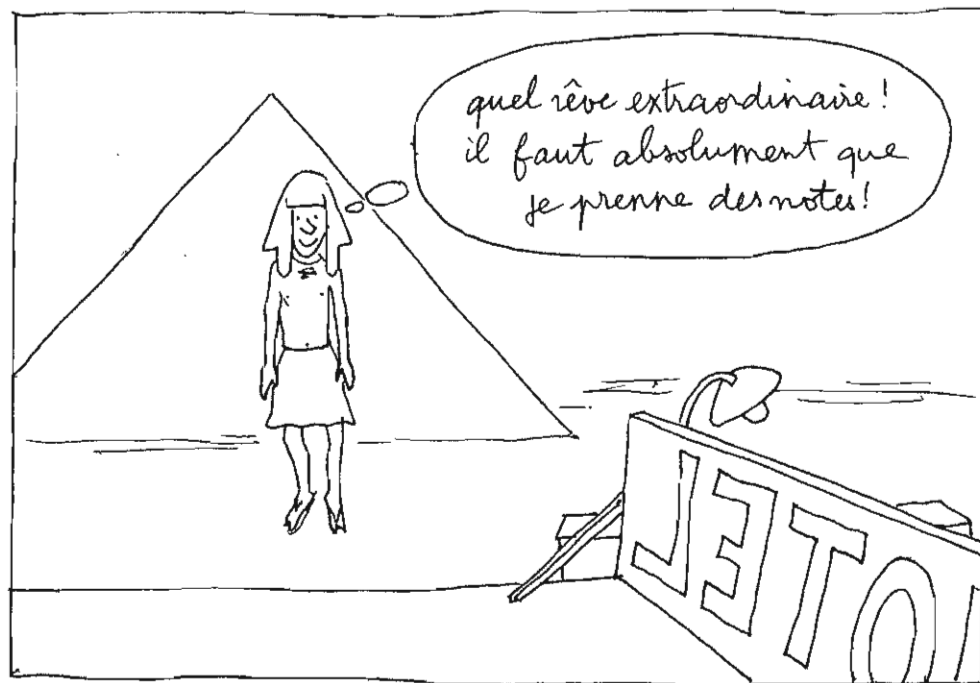 quel rêve extraordinaire !
il faut absolument que
je prenne des notes !
⅃ƎTO